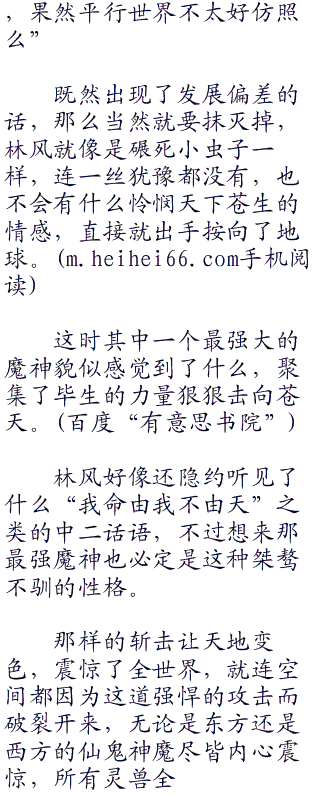 ，果然平行世界不太好仿照
么”
既然出现了发展偏差的
话，那么当然就要抹灭掉，
林风就像是碾死小虫子一
样，连一丝犹豫都没有，也
不会有什么怜悯天下苍生的
情感，直接就出手按向了地
球。(m.heihei66.com手机阅
读)
这时其中一个最强大的
魔神貌似感觉到了什么，聚
集了毕生的力量狠狠击向苍
天。(百度“有意思书院”)
林风好像还隐约听见了
什么“我命由我不由天”之
类的中二话语，不过想来那
最强魔神也必定是这种桀骜
不驯的性格。
那样的斩击让天地变
色，震惊了全世界，就连空
间都因为这道强悍的攻击而
破裂开来，无论是东方还是
西方的仙鬼神魔尽皆内心震
惊，所有灵兽全